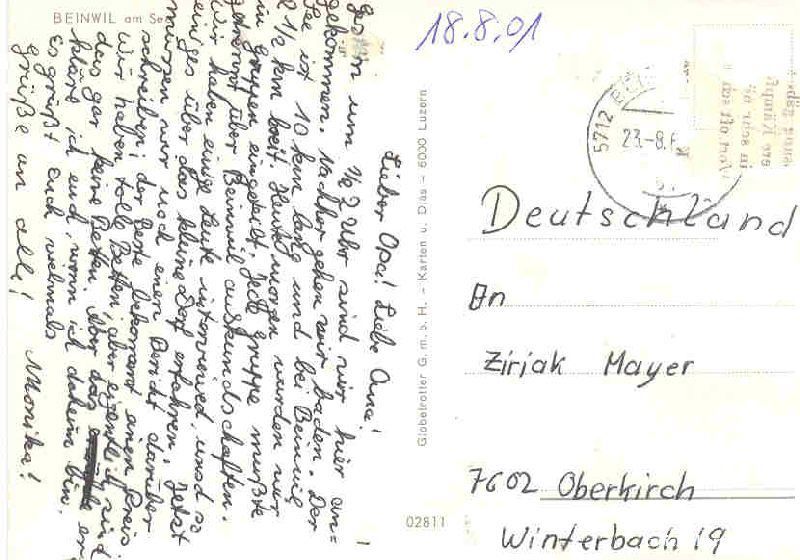 BEINWIL am See
18.8.01
Lieber Opa! Liebe Oma!
Gestern um ½ 7 Uhr sind wir hier an=
gekommen. Nachher gehen wir baden. Der
See ist 10 km lang und bei Beinwil
2 1/2 km breit. Heute morgen wurden wir
in Gruppen eingeteilt. Jede Gruppe mußte
getrennt über Beinwil auskundschaften.
Wir haben einige Leute interviewed und so
einiges über das kleine Dorf erfahren. Jetzt
müssen wir noch einen Bericht darüber
schreiben; der Beste bekommt einen Preis
Wir haben tolle Betten, aber eigentlich sind
das gar keine Betten. Aber das er
kläre ich euch, wenn ich daheim bin.
Es grüßt Euch vielmals
Monika!
Grüße an alle!
Globetrotter G. m. b. H. – Karten u. Dias – 6000 Luzern
02811
5712
23.-8.6
Deutschland
An
Zirjak Mayer
7602 Oberkirch
Winterbach 19